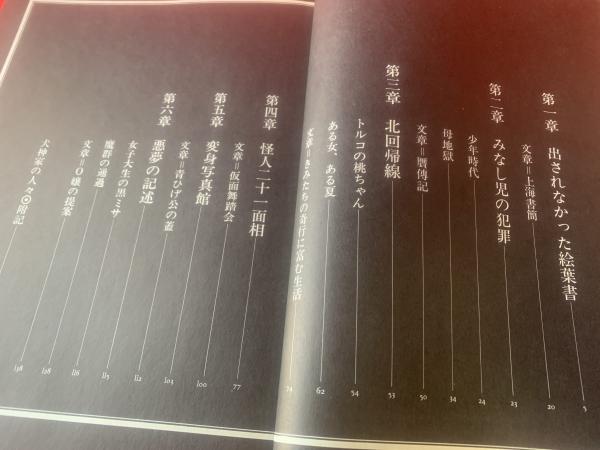 第一章 出されなかった絵葉書 5
文章＝上海書簡 20
第二章 みなし児の犯罪 23
少年時代 24
母地獄 34
文章＝贋傳記 50
第三章 北回帰線 53
トルコの桃ちゃん 54
ある女、ある夏 62
文章＝きみたちの奇行に富む生活 74
第四章 怪人二十一面相
文章＝仮面舞踏会 77
第五章 変身写真館 100
文章＝青ひげ公の蓋 103
第六章 悪夢の記述
女子大生の黒ミサ 112
魔群の通過 115
文章＝O嬢の提案 116
犬神家の人々⦿附記 128
138